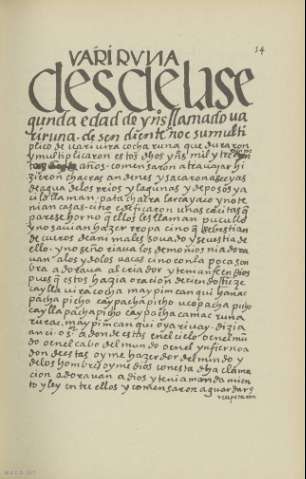 14
VARI RVNA
desdelase
gunda edad de yns llamado ua
ri runa de sendiente noe su multi
plico de uari uira cocha runa que duraron
y multiplicaron estos dhos yns mil y trecientos
años comensaron a trauajar hi
zieron chacras andenes y sacaron aseq̃as
de agua de los rrios y lagunas y de posos ya ci
lo llaman pata chacra larcayaco y no te
nian casas cino edificaron unas cacitas q̃
parese horno q̃ ellos les llaman pucullo
y no sauian hazer rropa cino q̃ bestian
de cueros de animales souado y se uistia de
ello y no seruian a los demonios ni adora
uan alos ydolos uacas cino con la poca son
bra adoraua al criador y tenian fe en dios
pues q̃ estos hazia oracion deciendo ticze
caylla uira cocha maypim canqui hanac
pacha picho cay pacha picho uco pacha picho
caylla pacha picho cay pacha camac runa
rurac maypim canqui oyariuay dizia
anci o s.r a donde estas en el cielo o en el mũ
do o en el cabo del mundo o en el ynfierno a
don de estas oyme hazedor del mundo y
de los hombres oyme dios con esta dha clama
cion adorauan a dios y tenia mandamiento
to y ley entre ellos y comensaron a guardar y